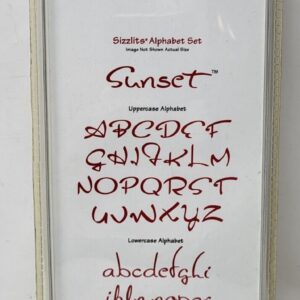 Sizzlits® Alphabet Set
Image Not Shown Actual Size
Sunset™
Uppercase Alphabet
ABCDEF
GHIJKLM
NOPQRST
UVWXYZ
Lowercase Alphabet
abcdefghi